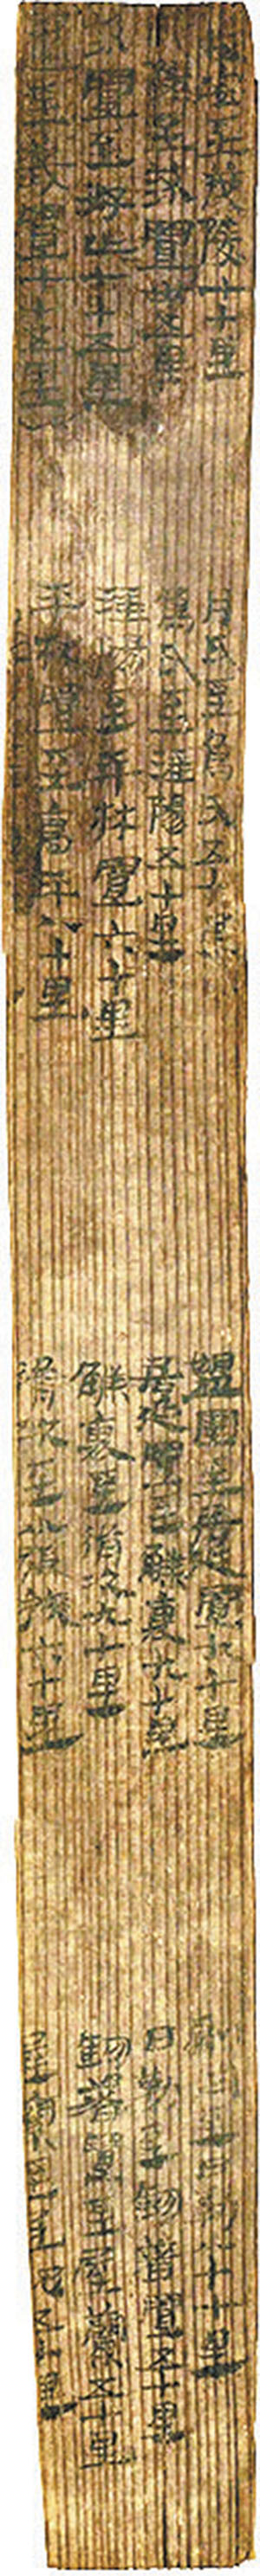 長安至茂陵七十里
茂陵至茯置卅五里
茯置至好止七十五里
好止至義置七十五里
月氏至烏氏五十里
烏氏至涇陽五十里
涇陽至平林置六十里
平林置至高平八十里
媼圍至居延置九十里
居延置至觻裏九十里
觻裏至揟次九十里
揟次至小張掖六十里
刪丹至日勒八十七里
日勒至鈞耆置五十里
鈞耆置至屋蘭五十里
屋蘭至氐池五十里